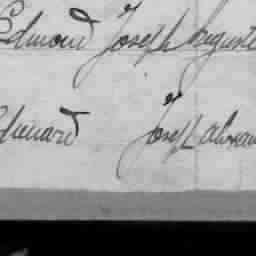 Edmond Joseph Auguste
Edouard Joseph